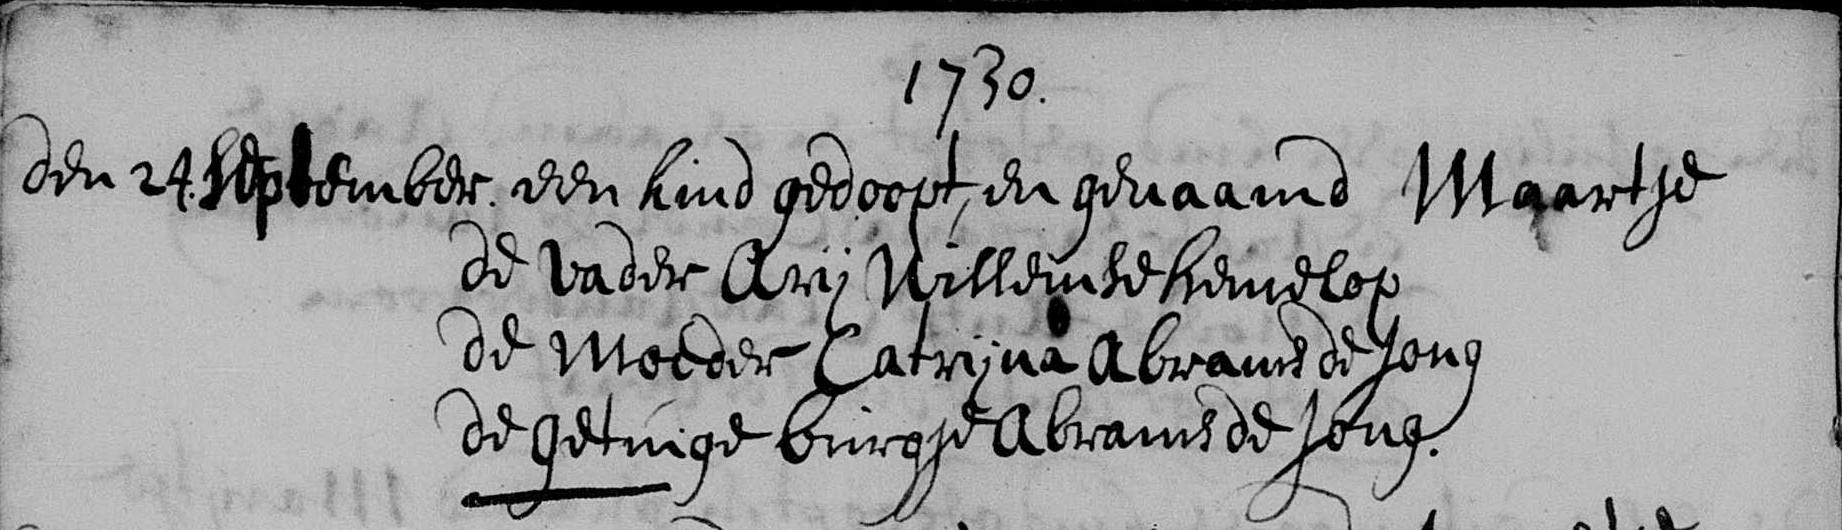 1730.
den 24. September. een kind gedoopt, en genaamd Maartje
de vader Arij Willemse kemelop
de Moeder Catrijna Abrams de Jong
de getuige burgje Abrams de Jong.